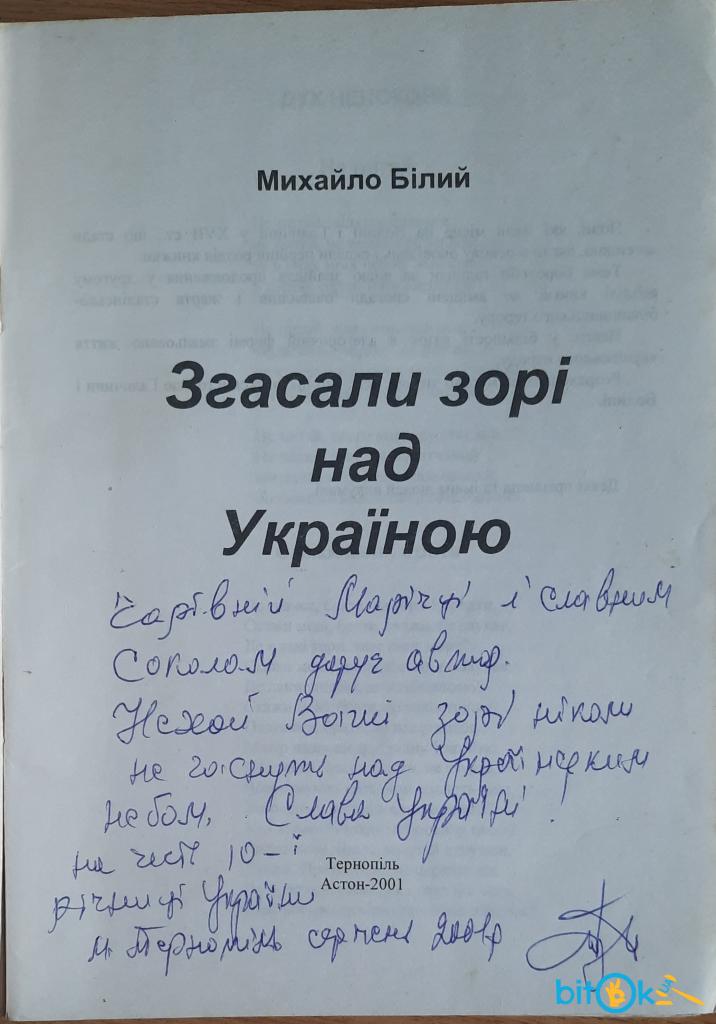 Михайло Білий
Згасали зорі
над
Україною
Чарівній Марічці і славним
Соколам дарує автор.
Нехай Ваші зорі ніколи
не гаснуть над Українським
небом. Слава Україні!
на честь 10-ї
Тернопіль
Астон-2001
річниці України
м. Тернопіль серпень 2001р
bitok.ua